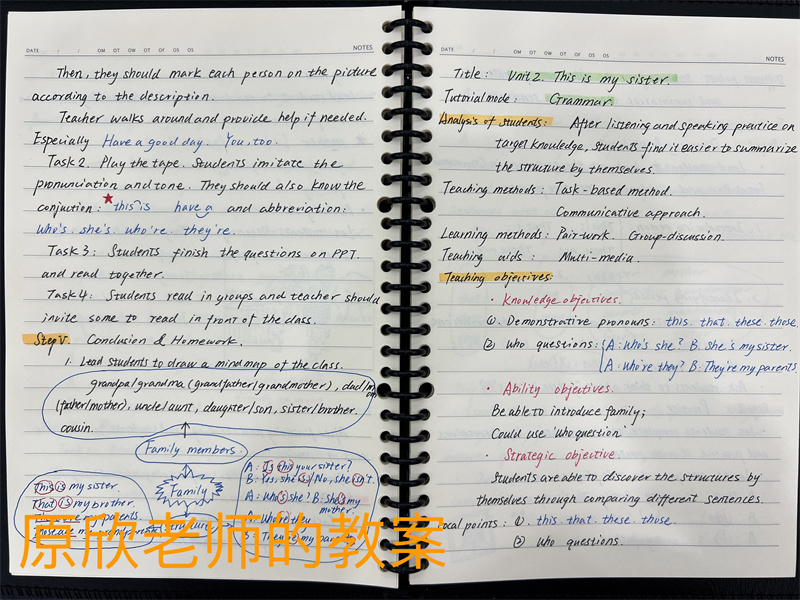 DATE / / OM OT OW OT OF OS OS NOTES
Then, they should mark each person on the picture
according to the description.
Teacher walks around and provide help if needed.
Especially Have a good day. You, too.
Task 2. Play the tape. Students imitate the
pronunciation and tone. They should also know the
conjuction: ★this is have a and abbreviation:
who's. she's. who're. they're.
Task 3: Students finish the questions on PPT.
and read together.
Task 4: Students read in groups and teacher should
invite some to read in front of the class.
Step V. Conclusion & Homework.
1. Lead students to draw a mindmap of the class.
grandpa/grandma (grandfather/grandmother), dad/mom
(father/mother), uncle/aunt, daughter/son, sister/brother.
cousin.
Family members.
Family
This is my sister.
That is my brother.
A: Is this your sister?
B: Yes, she is / No, she isn't.
A: Who's she? B: She's my
mother.
A: Who're they
B: They're my parents
原欣老师的教案
DATE / / OM OT OW OT OF OS OS NOTES
Title: Unit 2. This is my sister.
Tutorial mode: Grammar.
Analysis of students: After listening and speaking practice on
target knowledge, students find it easier to summarize
the structure by themselves.
Teaching methods: Task-based method.
Communicative approach.
Learning methods: Pair-work. Group-discussion.
Teaching aids: Multi-media.
Teaching objectives:
· Knowledge objectives.
①. Demonstrative pronouns: this. that. these. those.
② Who questions: A: Who's she? B: She's my sister.
A: Who're they? B: They're my parents
· Ability objectives.
Be able to introduce family;
Could use 'who question'
· Strategic objective.
Students are able to discover the structures by
themselves through comparing different sentences.
Focal points: ①. this. that. these. those.
② Who questions.